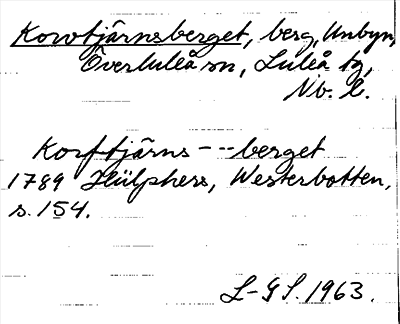 Korvtjärnsberget, berg, Unbyn,
Överluleå sn, Luleå tg,
Nb. l.
Korftjärns---berget
1789 Hülphers, Westerbotten,
s. 154.
L-GS. 1963.